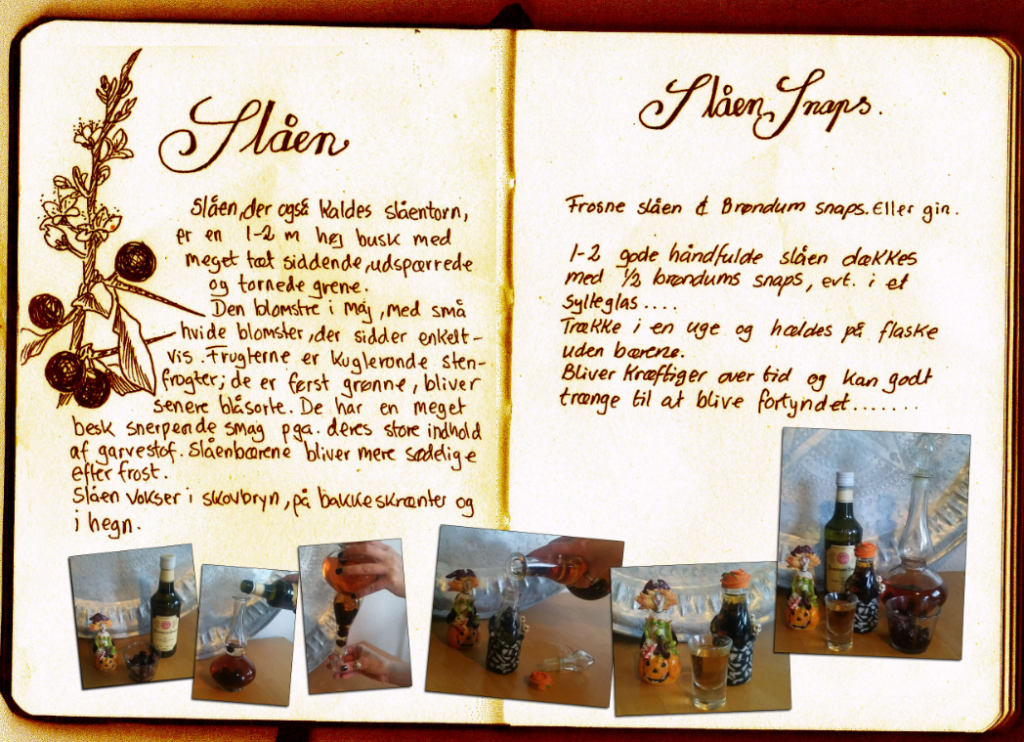 Slåen
Slåen, der også kaldes slåentorn,
er en 1-2 m høj busk med
meget tæt siddende, udspærrede
og tornede grene.
Den blomstre i maj, med små
hvide blomster, der sidder enkelt-
vis. Frugterne er kugleronde sten-
frogter; de er først grønne, bliver
senere blåsorte. De har en meget
besk snerpende smag pga. deres store indhold
af garvestof. Slåenbærene bliver mere sødelige
efter frost.
Slåen vokser i skovbryn, på bakkeskrænter og
i hegn.
Slåen Snaps.
Frosne slåen & Brøndum snaps. Eller gin.
1-2 gode håndfulde slåen dækkes
med 1/2 brøndums snaps, evt. i et
sylteglas....
Trække i en uge og hældes på flaske
uden bærene.
Bliver kræftiger over tid og kan godt
trænge til at blive fortyndet.......